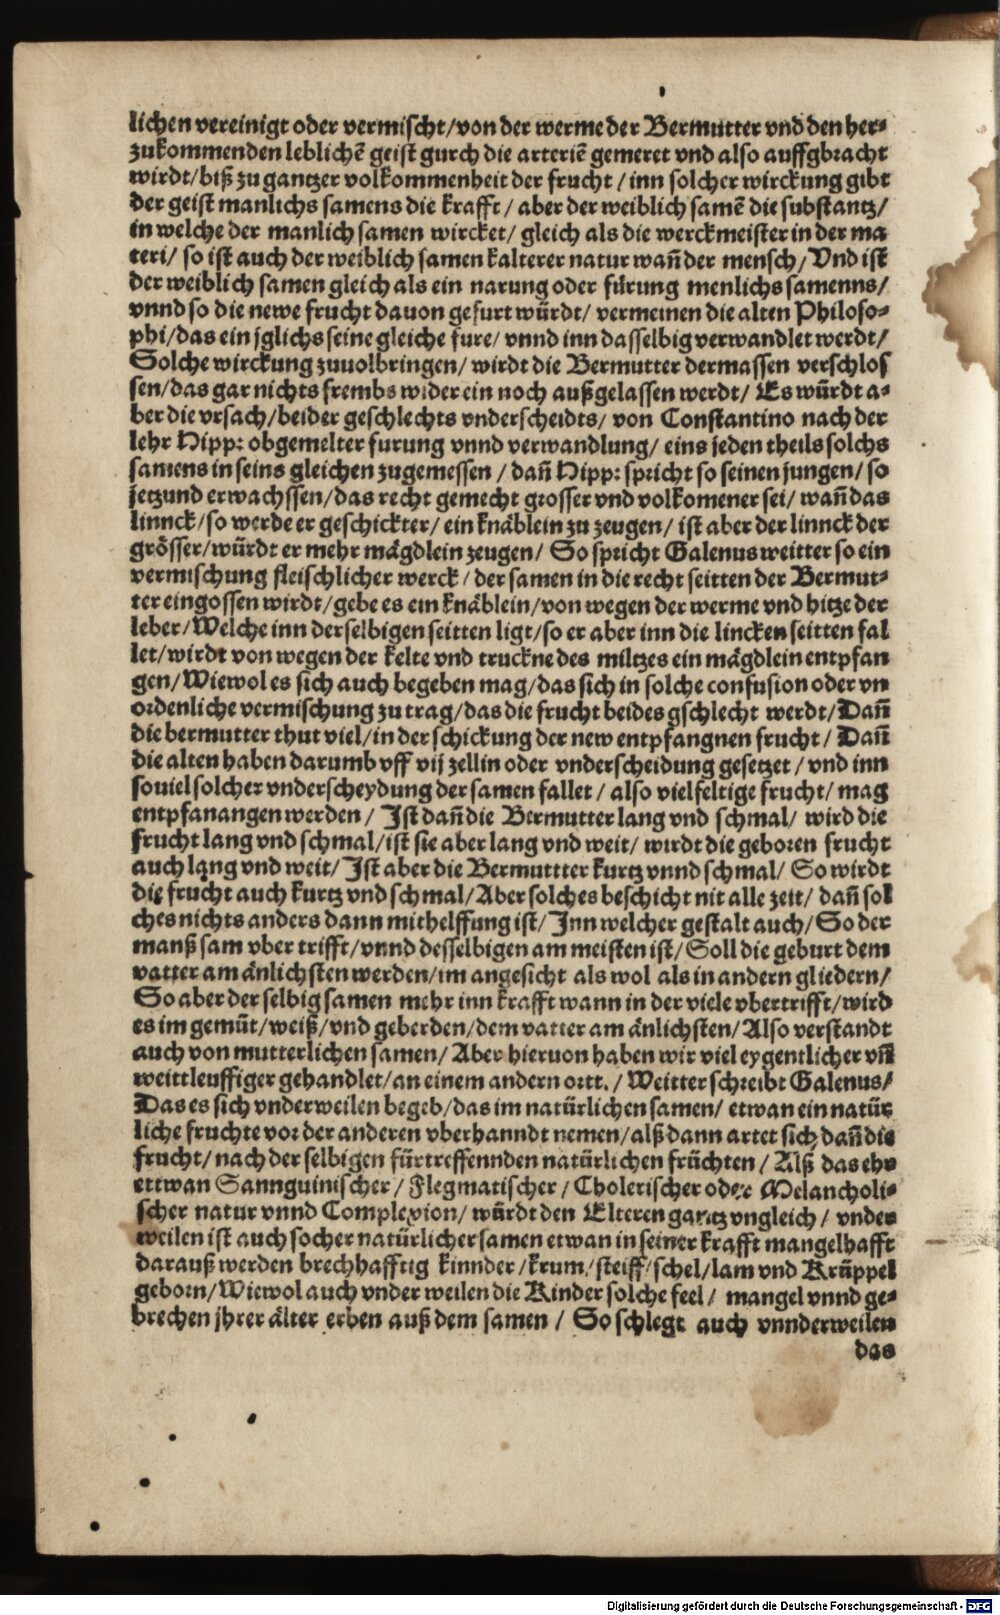 lichen vereinigt oder vermischt/von der werme der Bermutter vnd den her⸗
zukommenden leblichē geist gurch die arteriē gemeret vnd also auffgbracht
wirdt/biß zu gantzer volkommenheit der frucht / inn solcher wirckung gibt
der geist manlichs samens die krafft / aber der weiblich samē die substantz/
in welche der manlich samen wircket/ gleich als die werckmeister in der ma
teri/ so ist auch der weiblich samen kalterer natur wañ der mensch/ Vnd ist
der weiblich samen gleich als ein narung oder fürung menlichs samenns/
vnnd so die newe frucht dauon gefurt würdt/ vermeinen die alten Philoso⸗
phi/das ein jglichs seine gleiche fure/ vnnd inn dasselbig verwandlet werdt/
Solche wirckung zuuolbringen/ wirdt die Bermutter dermassen verschlos
sen/das gar nichts frembs wider ein noch außgelassen werdt/ Es würdt a⸗
ber die vrsach/beider geschlechts vnderscheidts/ von Constantino nach der
lehr Hipp: obgemelter furung vnnd verwandlung/ eins jeden theils solchs
samens in seins gleichen zugemessen / dañ Hipp: spricht so seinen jungen/ so
jetzund erwachssen/das recht gemecht grosser vnd volkomener sei/ wañ das
linnck/so werde er geschickter/ ein knäblein zu zeugen/ ist aber der linnck der
grösser/würdt er mehr mägdlein zeugen/ So spricht Galenus weitter so ein
vermischung fleischlicher werck/ der samen in die recht seitten der Bermut⸗
ter eingossen wirdt/gebe es ein knäblein/von wegen der werme vnd hitze der
leber/Welche inn derselbigen seitten ligt/so er aber inn die lincken seitten fal
let/wirdt von wegen der kelte vnd truckne des miltzes ein mägdlein entpfan
gen/Wiewol es sich auch begeben mag/das sich in solche confusion oder vn
ordenliche vermischung zu trag/das die frucht beides gschlecht werdt/Dañ
die bermutter thut viel/in der schickung der new entpfangnen frucht/ Dañ
die alten haben darumb vff vij zellin oder vnderscheidung gesetzet / vnd inn
souiel solcher vnderscheydung der samen fallet / also vielfeltige frucht/ mag
entpfanangen werden/ Ist dañ die Bermutter lang vnd schmal/ wird die
frucht lang vnd schmal/ist sie aber lang vnd weit/ wirdt die geboren frucht
auch lang vnd weit/ Ist aber die Bermuttter kurtz vnnd schmal/ So wirdt
die frucht auch kurtz vnd schmal/Aber solches beschicht nit alle zeit/ dañ sol
ches nichts anders dann mithelffung ist/ Inn welcher gestalt auch/ So der
manß sam vber trifft/vnnd desselbigen am meisten ist/ Soll die geburt dem
vatter am änlichsten werden/im angesicht als wol als in andern gliedern/
So aber der selbig samen mehr inn krafft wann in der viele vbertrifft/wird
es im gemüt/weiß/vnd geberden/dem vatter am änlichsten/Also verstandt
auch von mutterlichen samen/ Aber hieruon haben wir viel eygentlicher vñ
weittleuffiger gehandlet/an einem andern ortt. / Weitter schreibt Galenus/
Das es sich vnderweilen begeb/das im natürlichen samen/ etwan ein natür
liche fruchte vor der anderen vberhanndt nemen/alß dann artet sich dañ die
frucht/ nach der selbigen fürtreffennden natürlichen früchten / Alß das ehr
ettwan Sannguinischer / Flegmatischer / Cholerischer oder Melancholi⸗
scher natur vnnd Complexion/ würdt den Elteren gantz vngleich / vnder
weilen ist auch socher natürlicher samen etwan in seiner krafft mangelhafft
darauß werden brechhafftig kinnder/krum/steiff/schel/lam vnd Krüppel
geborn/Wiewol auch vnder weilen die Kinder solche feel/ mangel vnnd ge⸗
brechen jhrer älter erben auß dem samen / So schlegt auch vnnderweilen
das
Digitalisierung gefördert durch die Deutsche Forschungsgemeinschaft - DFG